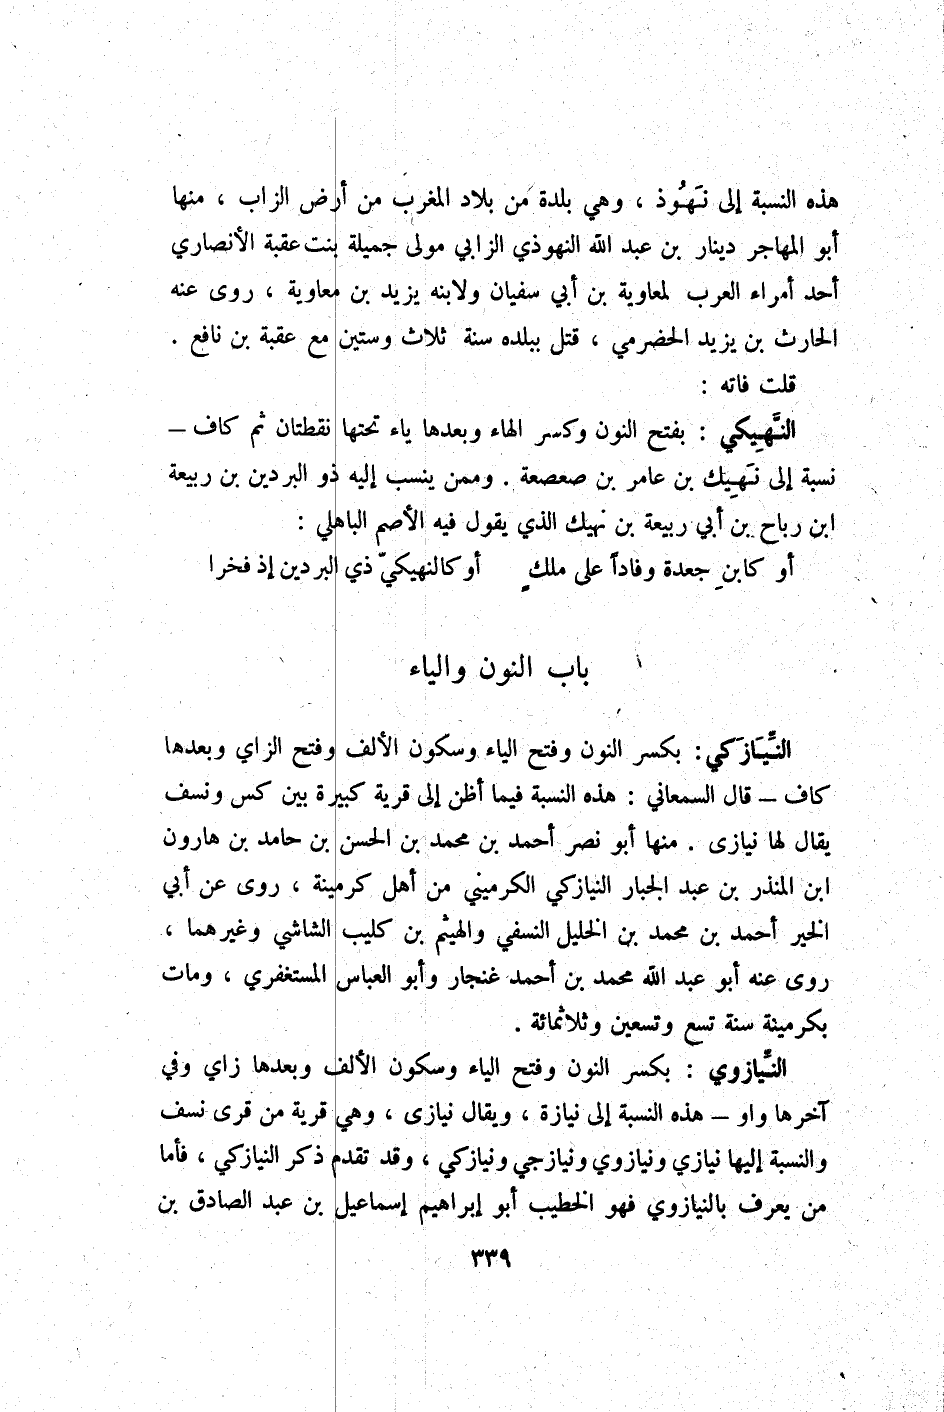 هذه النسبة إلى نَهُوذ ، وهي بلدة من بلاد المغرب من أرض الزاب ، منها
أبو المهاجر دينار بن عبد الله النهوذي الزابي مولى جميلة بنت عقبة الأنصاري
أحد أمراء العرب لمعاوية بن أبي سفيان ولابنه يزيد بن معاوية ، روى عنه
الحارث بن يزيد الحضرمي ، قتل ببلده سنة ثلاث وستين مع عقبة بن نافع .
قلت فاته :
النَّهِيكي : بفتح النون وكسر الهاء وبعدها ياء تحتها نقطتان ثم كاف –
نسبة إلى نَهِيك بن عامر بن صعصعة . وممن ينسب إليه ذو البردين بن ربيعة
ابن رباح بن أبي ربيعة بن نهيك الذي يقول فيه الأصم الباهلي :
أو كابنِ جعدة وفاداً على ملكٍ أو كالنهيكيّ ذي البردين إذ فخرا
باب النون والياء
النِّيَازَكي : بكسر النون وفتح الياء وسكون الألف وفتح الزاي وبعدها
كاف – قال السمعاني : هذه النسبة فيما أظن إلى قرية كبيرة بين كس ونسف
يقال لها نيازى . منها أبو نصر أحمد بن محمد بن الحسن بن حامد بن هارون
ابن المنذر بن عبد الجبار النيازكي الكرميني من أهل كرمينة ، روى عن أبي
الخير أحمد بن محمد بن الخليل النسفي والهيثم بن كليب الشاشي وغيرهما ،
روى عنه أبو عبد الله محمد بن أحمد غنجار وأبو العباس المستغفري ، ومات
بكرمينة سنة تسع وتسعين وثلاثمائة .
النِّيازوي : بكسر النون وفتح الياء وسكون الألف وبعدها زاي وفي
آخرها واو – هذه النسبة إلى نيازة ، ويقال نيازى ، وهي قرية من قرى نسف
والنسبة إليها نيازي ونيازوي ونيازجي ونيازكي ، وقد تقدم ذكر النيازكي ، فأما
من يعرف بالنيازوي فهو الخطيب أبو إبراهيم إسماعيل بن عبد الصادق بن
٣٣٩